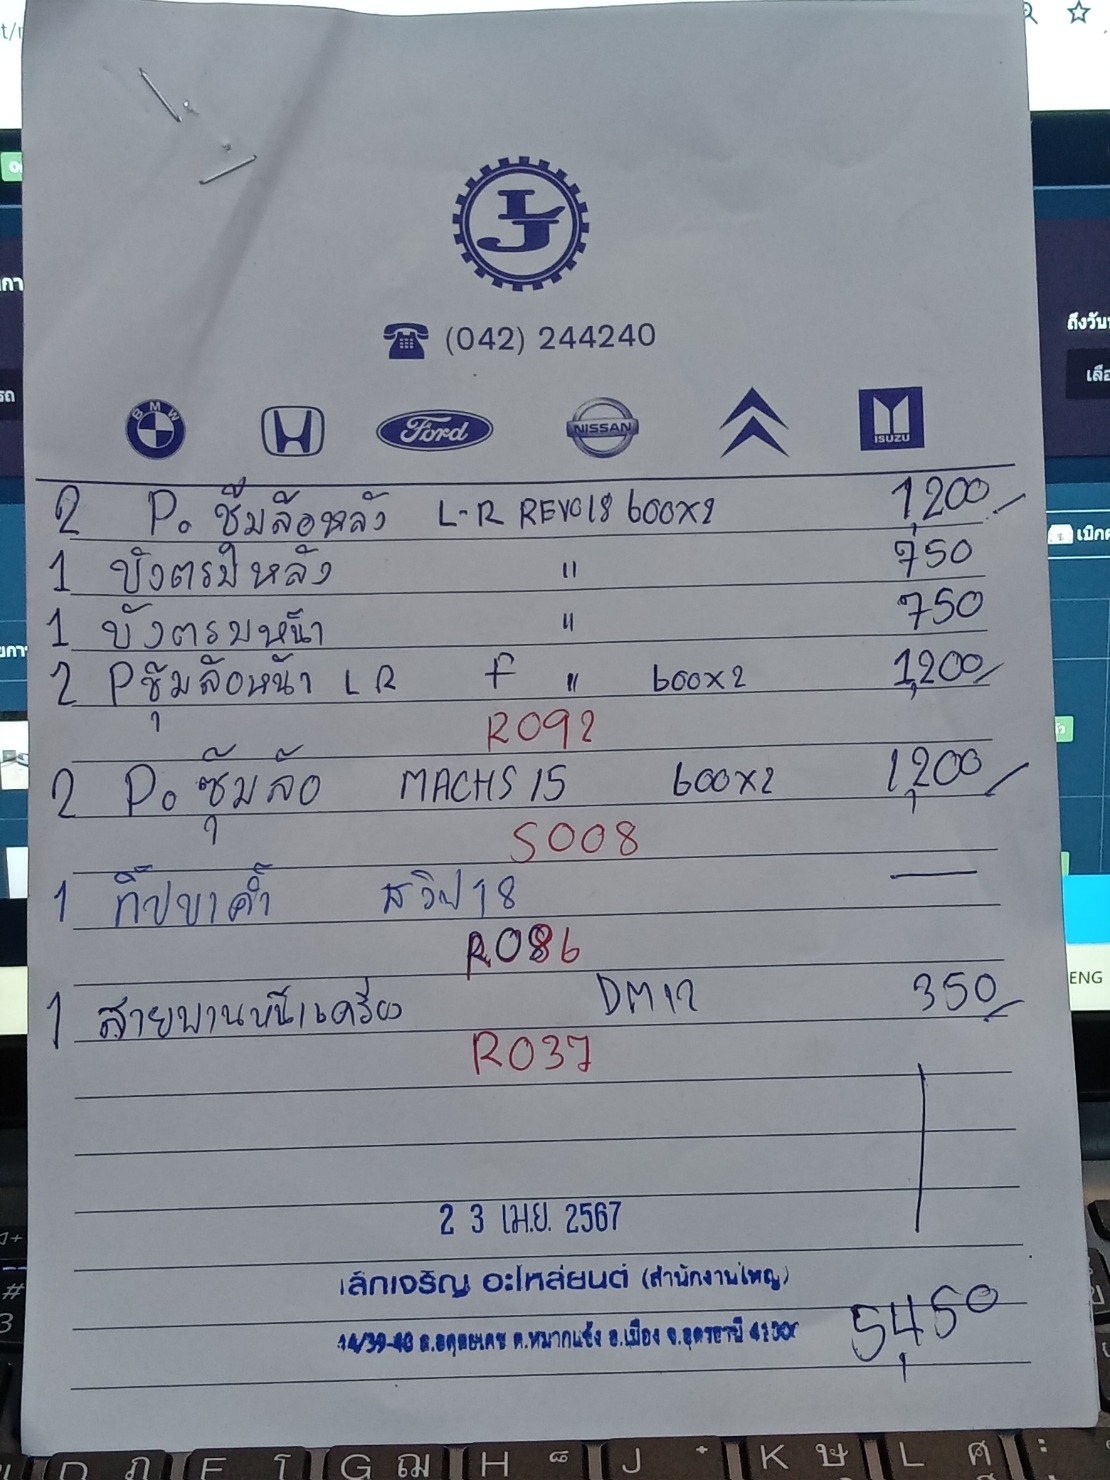 LJ
(042) 244240
BMW
Ford
NISSAN
ISUZU
2 P. ซุ้มล้อหลัง L-R REVO18 600x2 1,200
1 บังตรบหลัง " 750
1 บังตรบหน้า " 750
2 P ซุ้มล้อหน้า L R F " 600x2 1,200
R092
2 P. ซุ้มล้อ MACHS 15 600x2 1,200
S008
1 กิ๊ปขาค้ำ สวิฟ 18 —
R086
1 สายพานหน้าเครื่อง DM12 350
R037
2 3 เม.ย. 2567
เล็กเจริญ อะไหล่ยนต์ (สำนักงานใหญ่)
ต.หมากแข้ง อ.เมือง จ.อุดรธานี
5,450
ENG
ถึงวัน